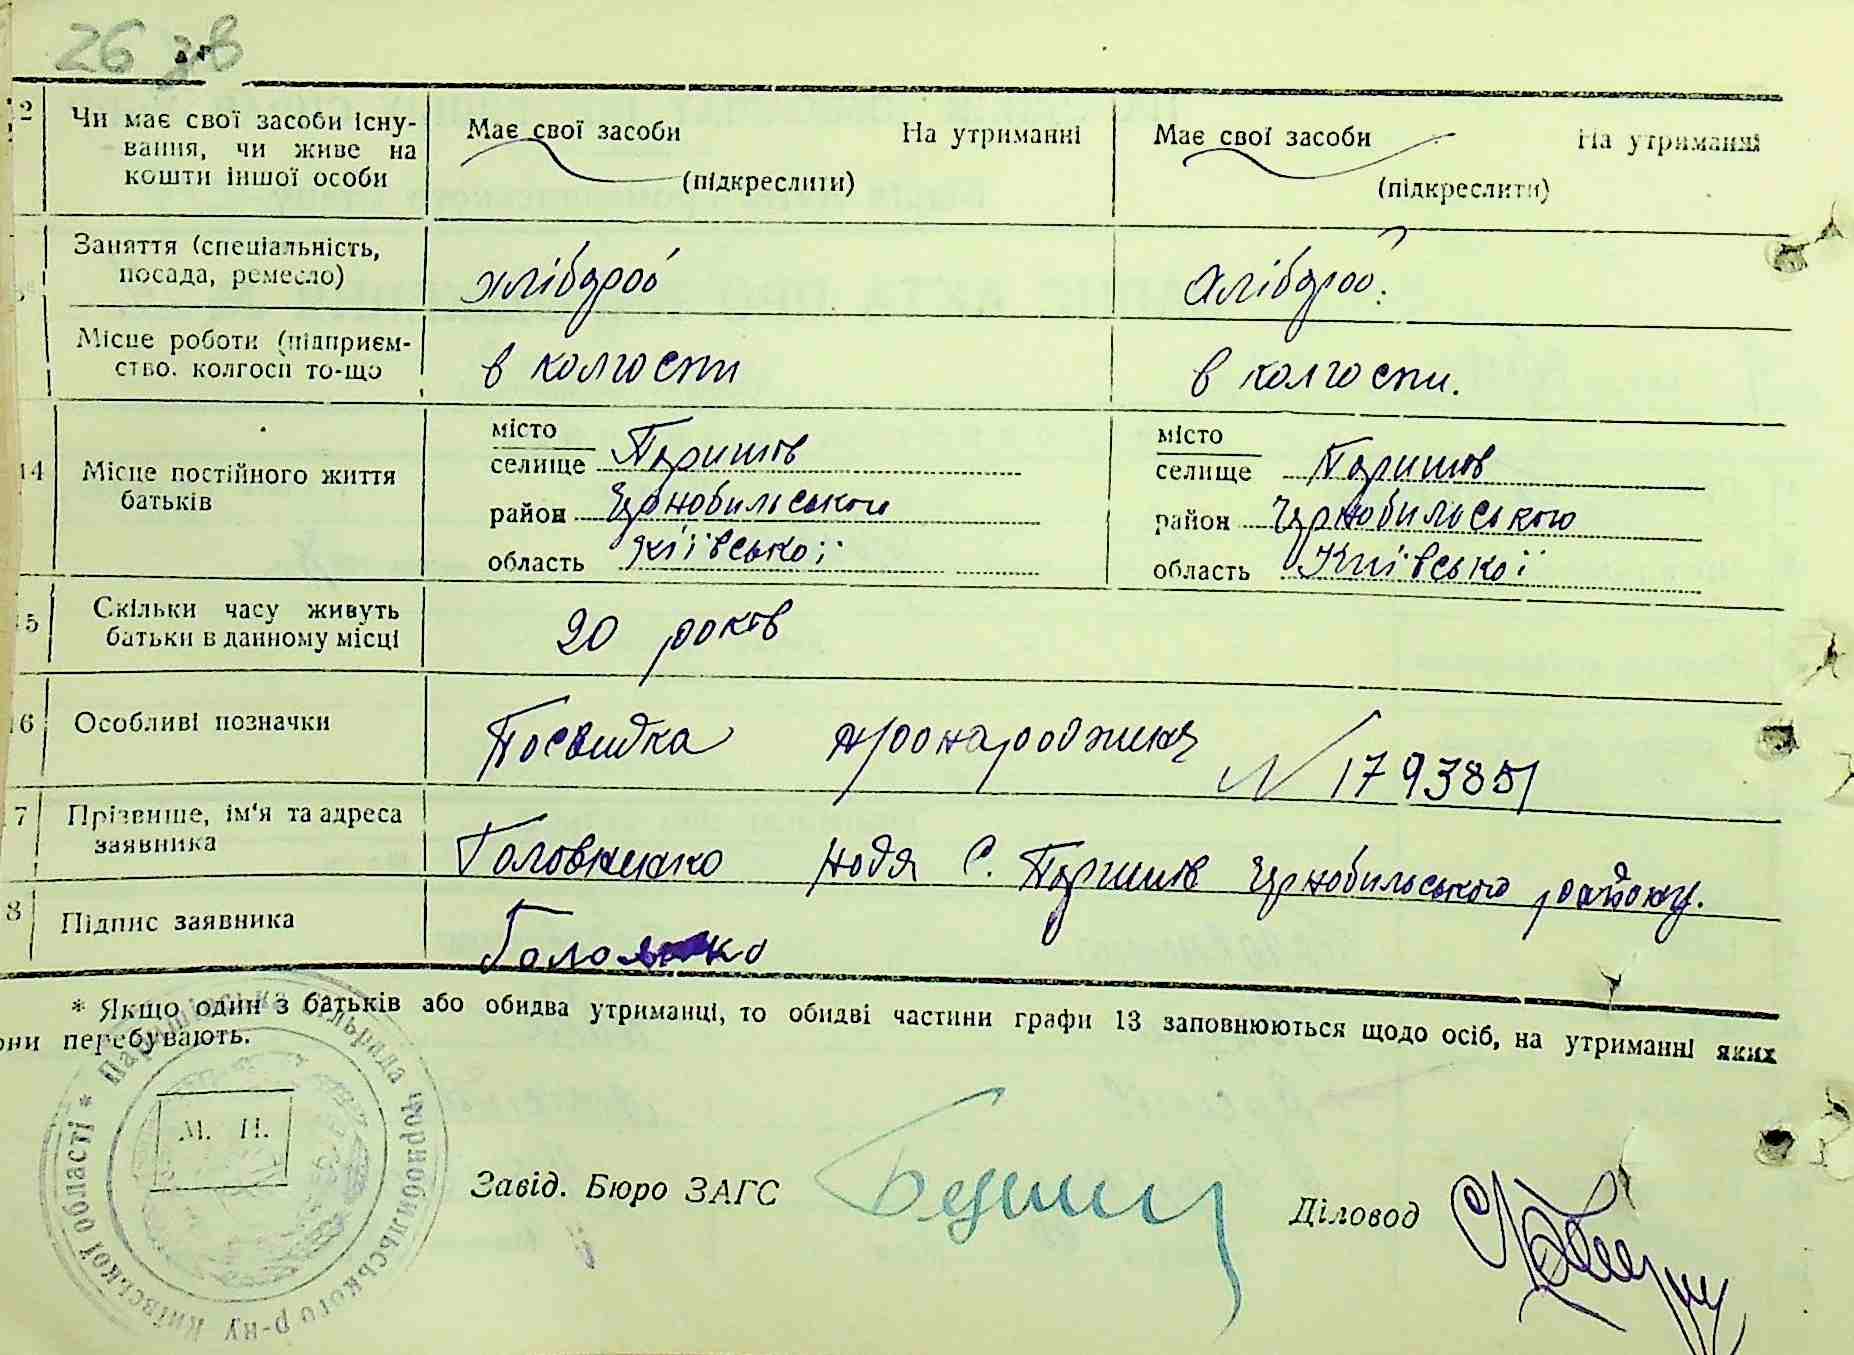 26 зв
2 Чи має свої засоби існу-
вання, чи живе на
кошти іншої особи
Має свої засоби На утриманні
(підкреслити)
Має свої засоби На утриманні
(підкреслити)
Заняття (спеціальність,
посада, ремесло)
хлібороб
хлібороб.
Місце роботи (підприєм-
ство, колгосп то-що
в колгоспи
в колгоспи.
14 Місце постійного життя
батьків
місто
селище Паришів
район Чорнобильського
область Київської
місто
селище Паришів
район Чорнобильського
область Київської
15 Скільки часу живуть
батьки в данному місці
20 років
16 Особливі позначки
Посвидка
N 1793851
7 Прізвище, ім'я та адреса
заявника
Надя С. Паришів Чорнобильського району.
8 Підпис заявника
* Якщо один з батьків або обидва утриманці, то обидві частини графи 13 заповнюються щодо осіб, на утриманні яких
они перебувають.
Паришівська сільрада Чорнобильського р-ну Київської області *
М. П.
Завід. Бюро ЗАГС
Діловод